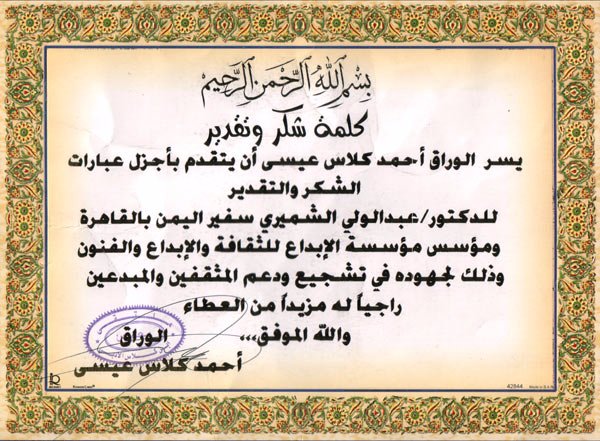 بسم الله الرحمن الرحيم
كلمة شكر وتقدير
يسر الوراق أحمد كلاس عيسى أن يتقدم بأجزل عبارات
الشكر والتقدير
للدكتور/عبدالولي الشميري سفير اليمن بالقاهرة
ومؤسس مؤسسة الإبداع للثقافة والإبداع والفنون
وذلك لجهوده في تشجيع ودعم المثقفين والمبدعين
راجياً له مزيداً من العطاء
والله الموفق،،،
الوراق
أحمد كلاس عيسى
42844